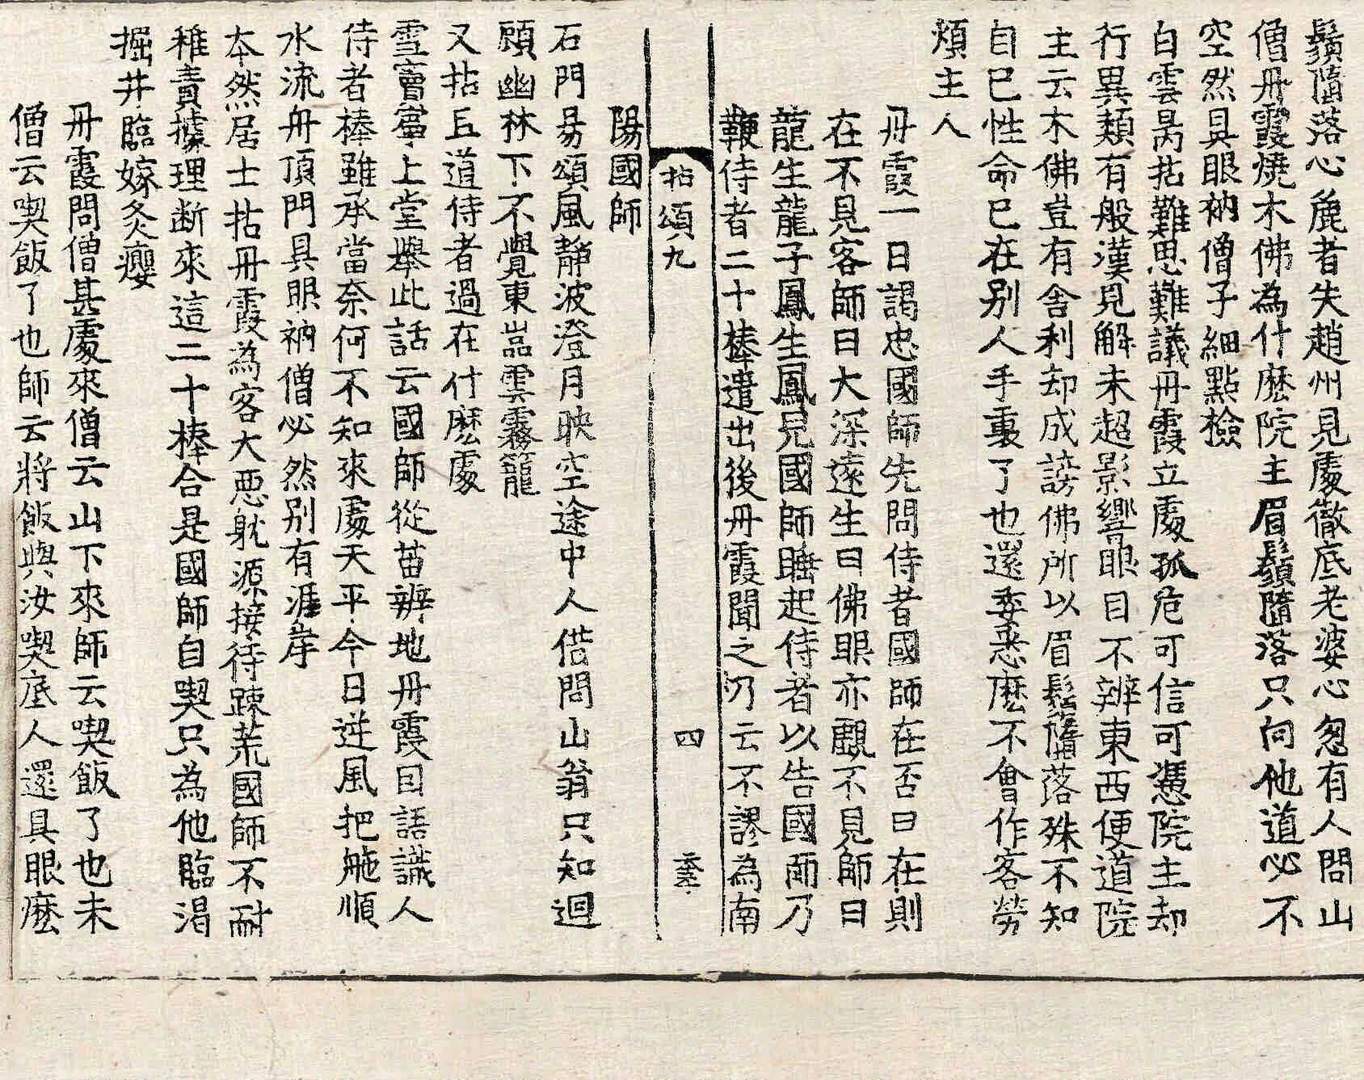 鬚墮落心麁者失趙州見處徹底老婆心忽有人問山
僧丹霞燒木佛為什麽院主眉鬚墮落只向他道必不
空然具眼衲僧子細點檢
白雲昺拈難思難議丹霞立處孤危可信可憑院主却
行異類有般漢見解未超影響眼目不辨東西便道院
主云木佛豈有舍利却成謗佛所以眉鬚墮落殊不知
自己性命已在別人手裏了也還委悉麽不會作客勞
煩主人
丹霞一日謁忠國師先問侍者國師在否曰在則
在不見客師曰大深遠生曰佛眼亦覷不見師曰
龍生龍子鳳生鳳兒國師睡起侍者以告國師乃
鞭侍者二十棒遣出後丹霞聞之乃云不謬為南
拈頌九 四
陽國師
石門易頌風靜波澄月映空途中人借問山翁只知迴
顧幽林下不覺東嵓雲霧籠
又拈且道侍者過在什麽處
雪竇當上堂舉此話云國師從苗辨地丹霞因語識人
侍者棒雖承當奈何不知來處天平今日逆風把柂順
水流舟頂門具眼衲僧必然別有涯岸
本然居士拈丹霞為客大惡躭源接待踈荒國師不耐
稚責據理断來這二十棒合是國師自喫只為他臨渴
掘井臨嫁灸癭
丹霞問僧甚處來僧云山下來師云喫飯了也未
僧云喫飯了也師云將飯與汝喫底人還具眼麽